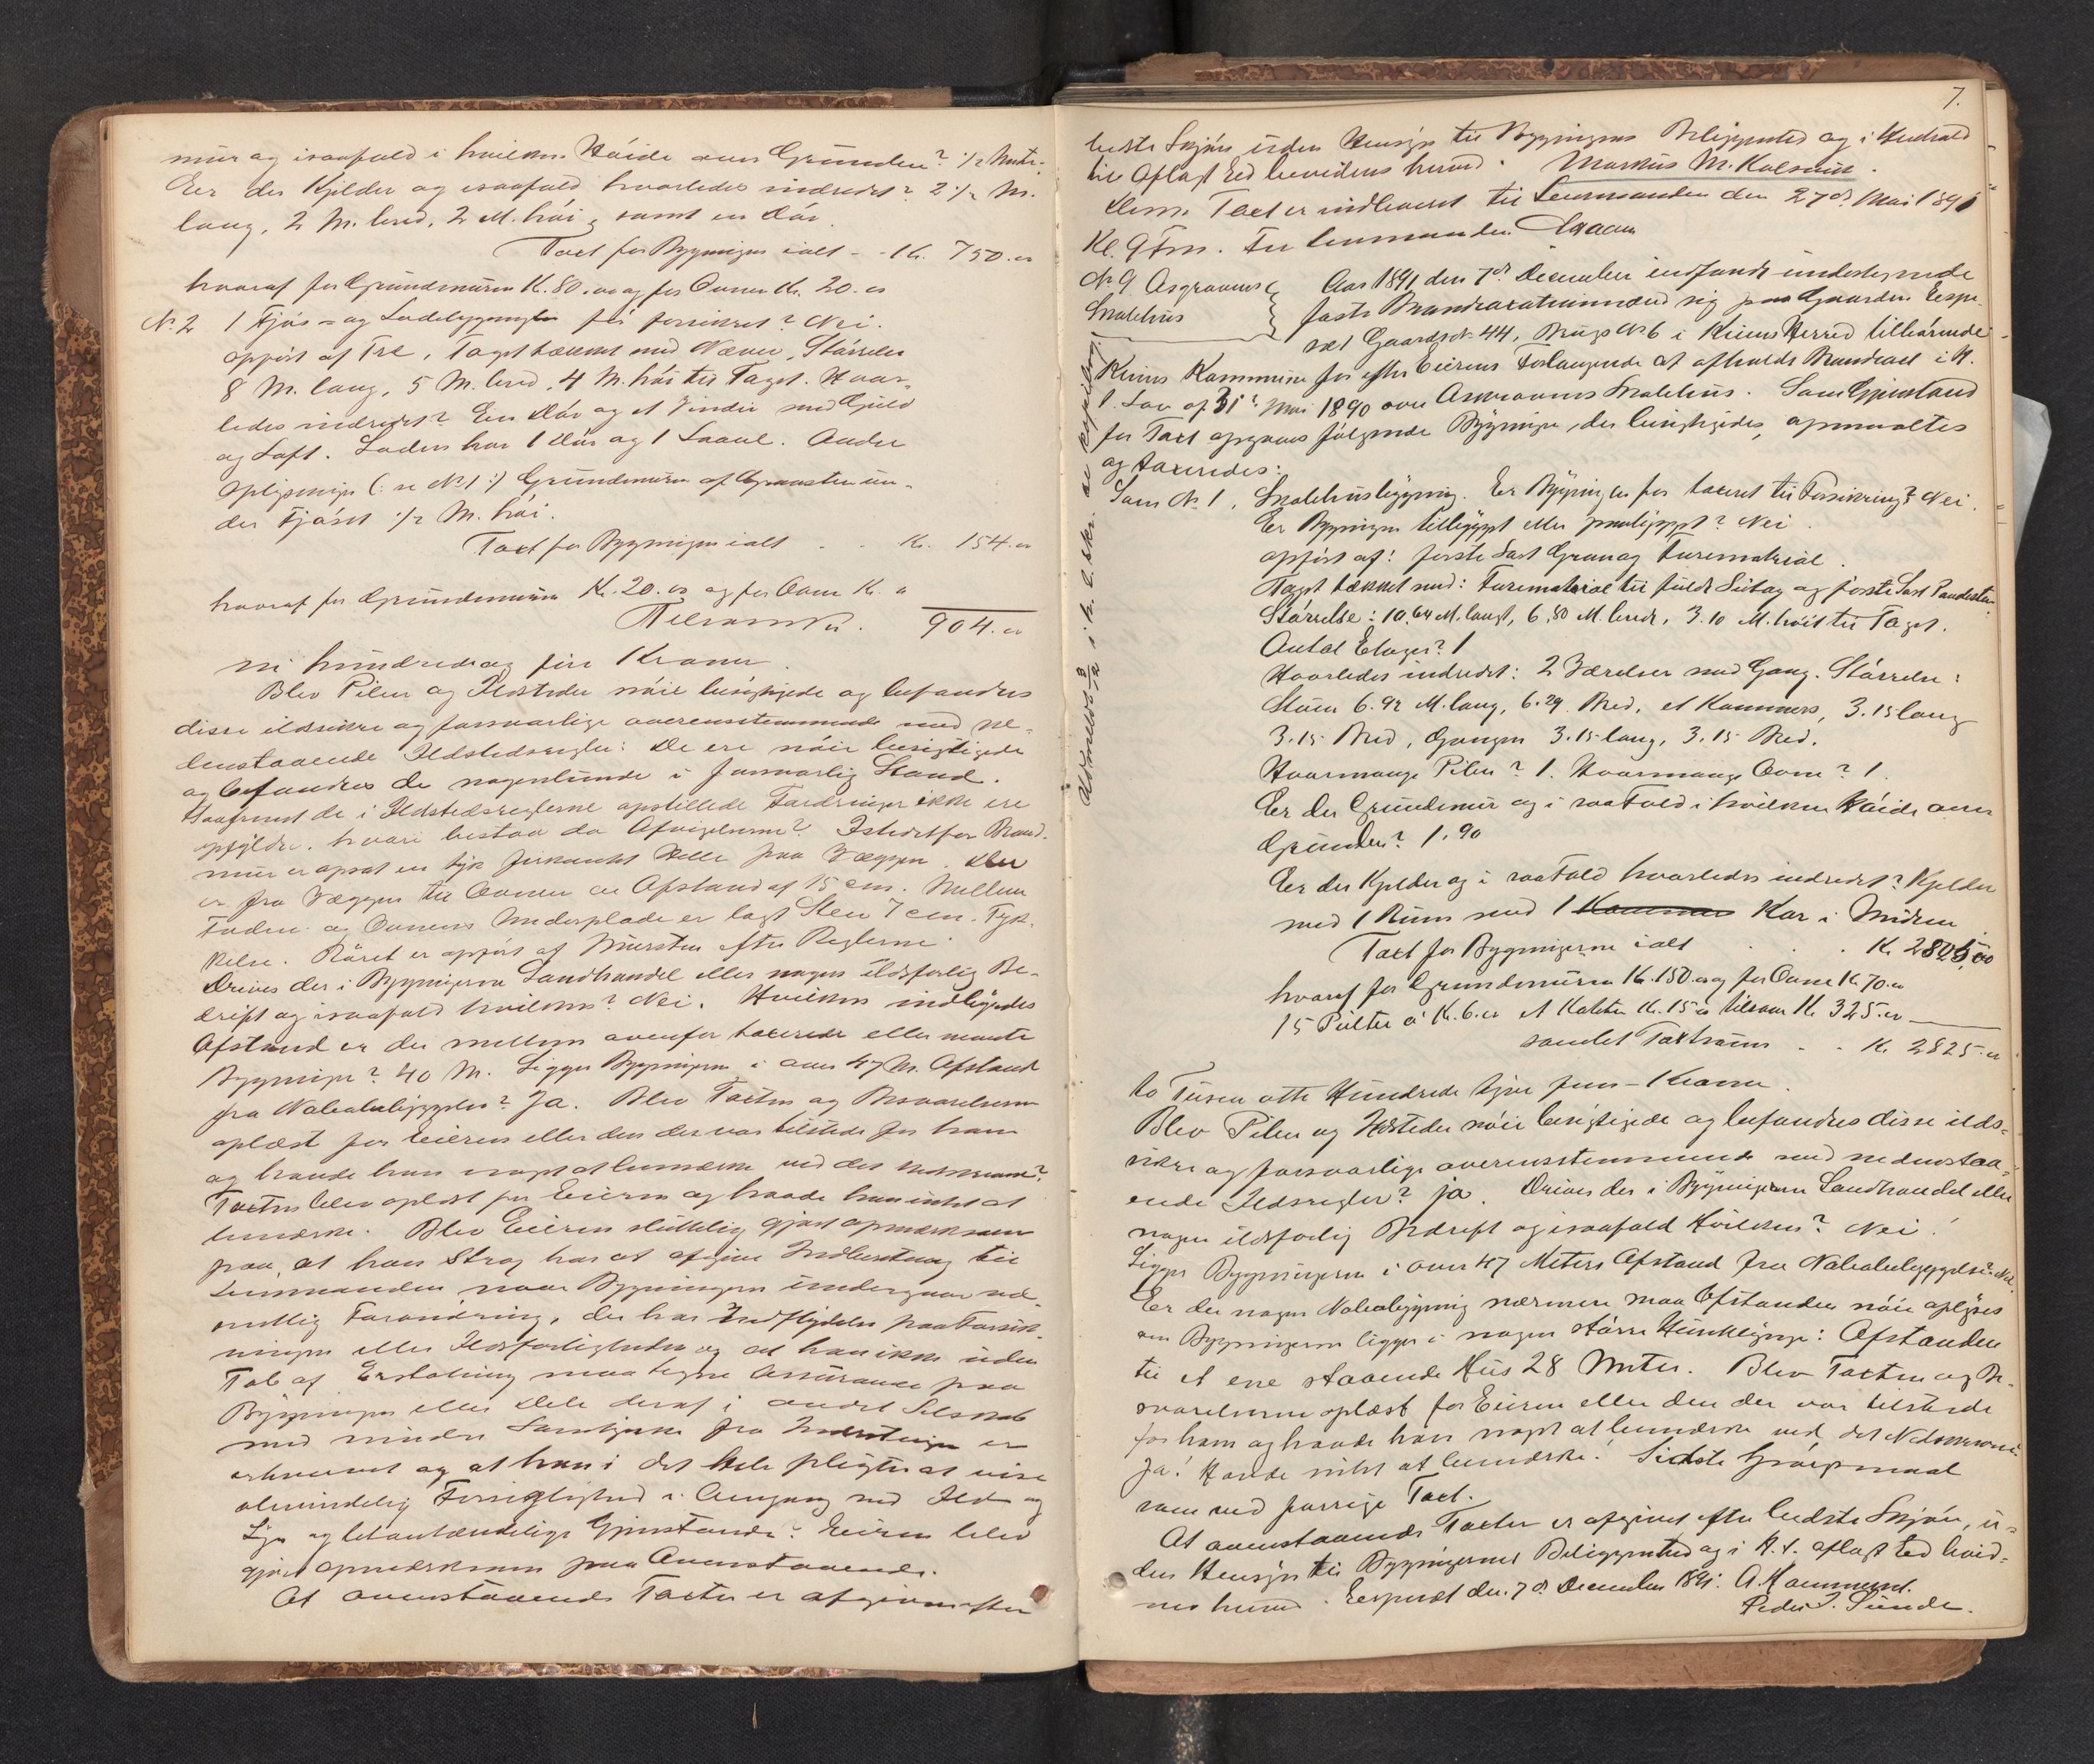 mur og isaafald i hvilken Høide over Grunden? 1/2 Meter.
Er der Kjelder og isaafald hvorledes indredet? 2 1/2 M.
lang, 2 M. bred, 2 M. høi, samt en Dør.
Taxt for Bygningen ialt - - Kr. 750.00
hvoraf for Grundmuren Kr. 80.00 og for Ovnen Kr. 20.00
No. 2 1 Fjøs- og Ladebygning før forsikret? Nei.
opført af Træ, Taget tækket med Næver, Størrelse
8 M. lang, 5 M. bred, 4 M. høi til Taget. Hvor-
ledes indredet? En Dør og et Vindu med Gulv
og Loft. Laden har 1 Dør og 1 Laave. Andre
Oplysninger (: se No 1 :) Grundmuren af Graasten un-
der Fjøset 1/2 M. høi.
Taxt for Bygningen ialt - - Kr. 154.00
hvoraf for Grundmuren Kr. 20.00 og for Ovne Kr. "
Tilsammen Kr. 904.00
ni hundrede og fire Kroner.
Blev Piber og Ildsteder nøie besigtigede og befandtes
disse ildsikre og forsvarlige overensstemmende med ne-
denstaaende Ildstedsregler: De ere nøie besigtigede
og befandtes de nogenlunde i forsvarlig Stand.
Saafremt de i Ildstedsreglerne opstillede Fordringer ikke ere
opfyldte, hvori bestaa da Afvigelserne? Istedetfor Brand-
mur er opsat en tyk firkantet Helle paa Væggen. Der
er fra Væggen til Ovnen en Afstand af 15 cm. Mellem
Foden og Ovnens Underplade er lagt Sten 7 cm. Tyk-
kelse. Røret er opført af Mursten efter Reglerne.
Drives der i Bygningerne Landhandel eller nogen ildsfarlig Be-
drift og isaafald hvilken? Nei. Hvilken indbyrdes
Afstand er der mellem ovenfor taxerede eller nævnte
Bygninger? 40 M. Ligger Bygningerne i over 47 M. Afstand
fra Nabobebyggelse? Ja. Blev Taxten og Besvarelserne
oplæst for Eieren eller den der var tilstede for ham
og havde han noget at bemærke ved det Nedskrevne?
Taxten blev oplæst for Eieren og havde han intet at
bemærke. Blev Eieren sluttelig gjort opmærksom
paa, at han Strax har at afgive Indberetning til
Lensmanden naar Bygningen undergaar væ-
sentlig Forandring, der har Indflydelse paa Forsik-
ringen eller Ildsfarligheden og at han ikke uden
Tab af Erstatning maa tegne Assurance paa
Bygningen eller Dele deraf i andet Selskab
med mindre Samtykke fra Indretningen er
erhvervet og at han i det Hele pligter at vise
almindelig Forsigtighed i Omgang med Ild og
Lys og letantændelige Gjenstande? Eieren blev
gjort opmærksom paa Ovenstaaende.
At ovenstaaende Taxter er afgiven efter
7.
bedste Skjøn uden Hensyn til Bygningens Beliggenhed og i Henhold
til Aflagt Eed bevidnes herved. Markus M. Kalsvik.
Denne Taxt er indleveret til Lensmanden den 27de Mai 1891
Kl. 9 Fm. For Lensmanden
No 9 Asgravens
Skolehus
Aar 1891 den 7de December indfandt undertegnede
faste Brandtaxationsmænd sig paa Gaarden Espe-
set Gaards No 44, Brugs No 6 i Kinns Herred tilhørende
Kinns Kommune for efter Eierens Forlangende at afholde Brandtaxt i H.
t. Lov af 31te Mai 1890 over Askravens Skolehus. Som Gjenstand
for Taxt opgaves følgende Bygninger, der besigtigedes, opmaaltes
og taxeredes:
Som No 1, Skolehusbygning. Er Bygningen før taxeret til Forsikring? Nei.
Er Bygningen tilbygget eller paabygget? Nei.
opført af: første Sort Gran og Furemateriale.
Taget tækket med: Furemateriale til fuldt Sutag og første Sort Pandesten
Størrelse: 10.64 M. langt, 6.80 M. bredt, 3.10 M. høit til Taget.
Antal Etager? 1
Hvorledes indredet: 2 Værelser med Gang. Størrelse:
Stuen 6.92 M. lang, 6.29 Bred, et Kammers, 3.15 lang
3.15 Bred, Gangen 3.15 lang, 3.15 Bred.
Hvormange Piber? 1. Hvormange Ovne? 1.
Er der Grundmur og i saa Fald i hvilken Høide over
Grunden? 1.90
Er der Kjelder og i saa Fald hvorledes indredet? Kjelder
med 1 Rum med 1 Kar i Midten
Taxt for Bygningerne ialt - - Kr. 2825.00
hvoraf for Grundmuren Kr. 150.00 og for Ovne Kr. 70.00
15 Pulter a Kr. 6.00 et Kateter Kr. 15.00 tilsam Kr. 325.00
samlet Taxtsum - - Kr. 2825.00
to Tusen otte Hundrede tyve fem - Kroner.
Blev Piber og Ildsteder nøie besigtigede og befandtes disse ilds-
sikre og forsvarlige overensstemmende med nedenstaa-
ende Ildsregler? ja. Drives der i Bygningerne Landhandel eller
nogen ildsfarlig Bedrift og isaafald Hvilken? Nei!
Ligger Bygningerne i over 47 Meters Afstand fra Nabobebyggelse? Nei.
Er der nogen Nabobygning nærmere maa Afstanden nøie oplyses
om Bygningerne ligger i nogen større Husklynge: Afstanden
til et ene staaende Hus 28 Meter. Blev Taxten og Be-
svarelserne oplæst for Eieren eller den der var tilstede
for ham og havde han noget at bemærke ved det Nedskrevne
Ja! Havde intet at bemærke! Sidste Spørgsmaal
som ved forrige Taxt.
At ovenstaaende Taxter er afgivet efter bedste Skjøn, u-
den Hensyn til Bygningernes Beliggenhed og i H. t. aflagt Ed bevid-
nes herved. Espeset den 7de December 1891. A. Hammerset.
Peder J. Sunde.